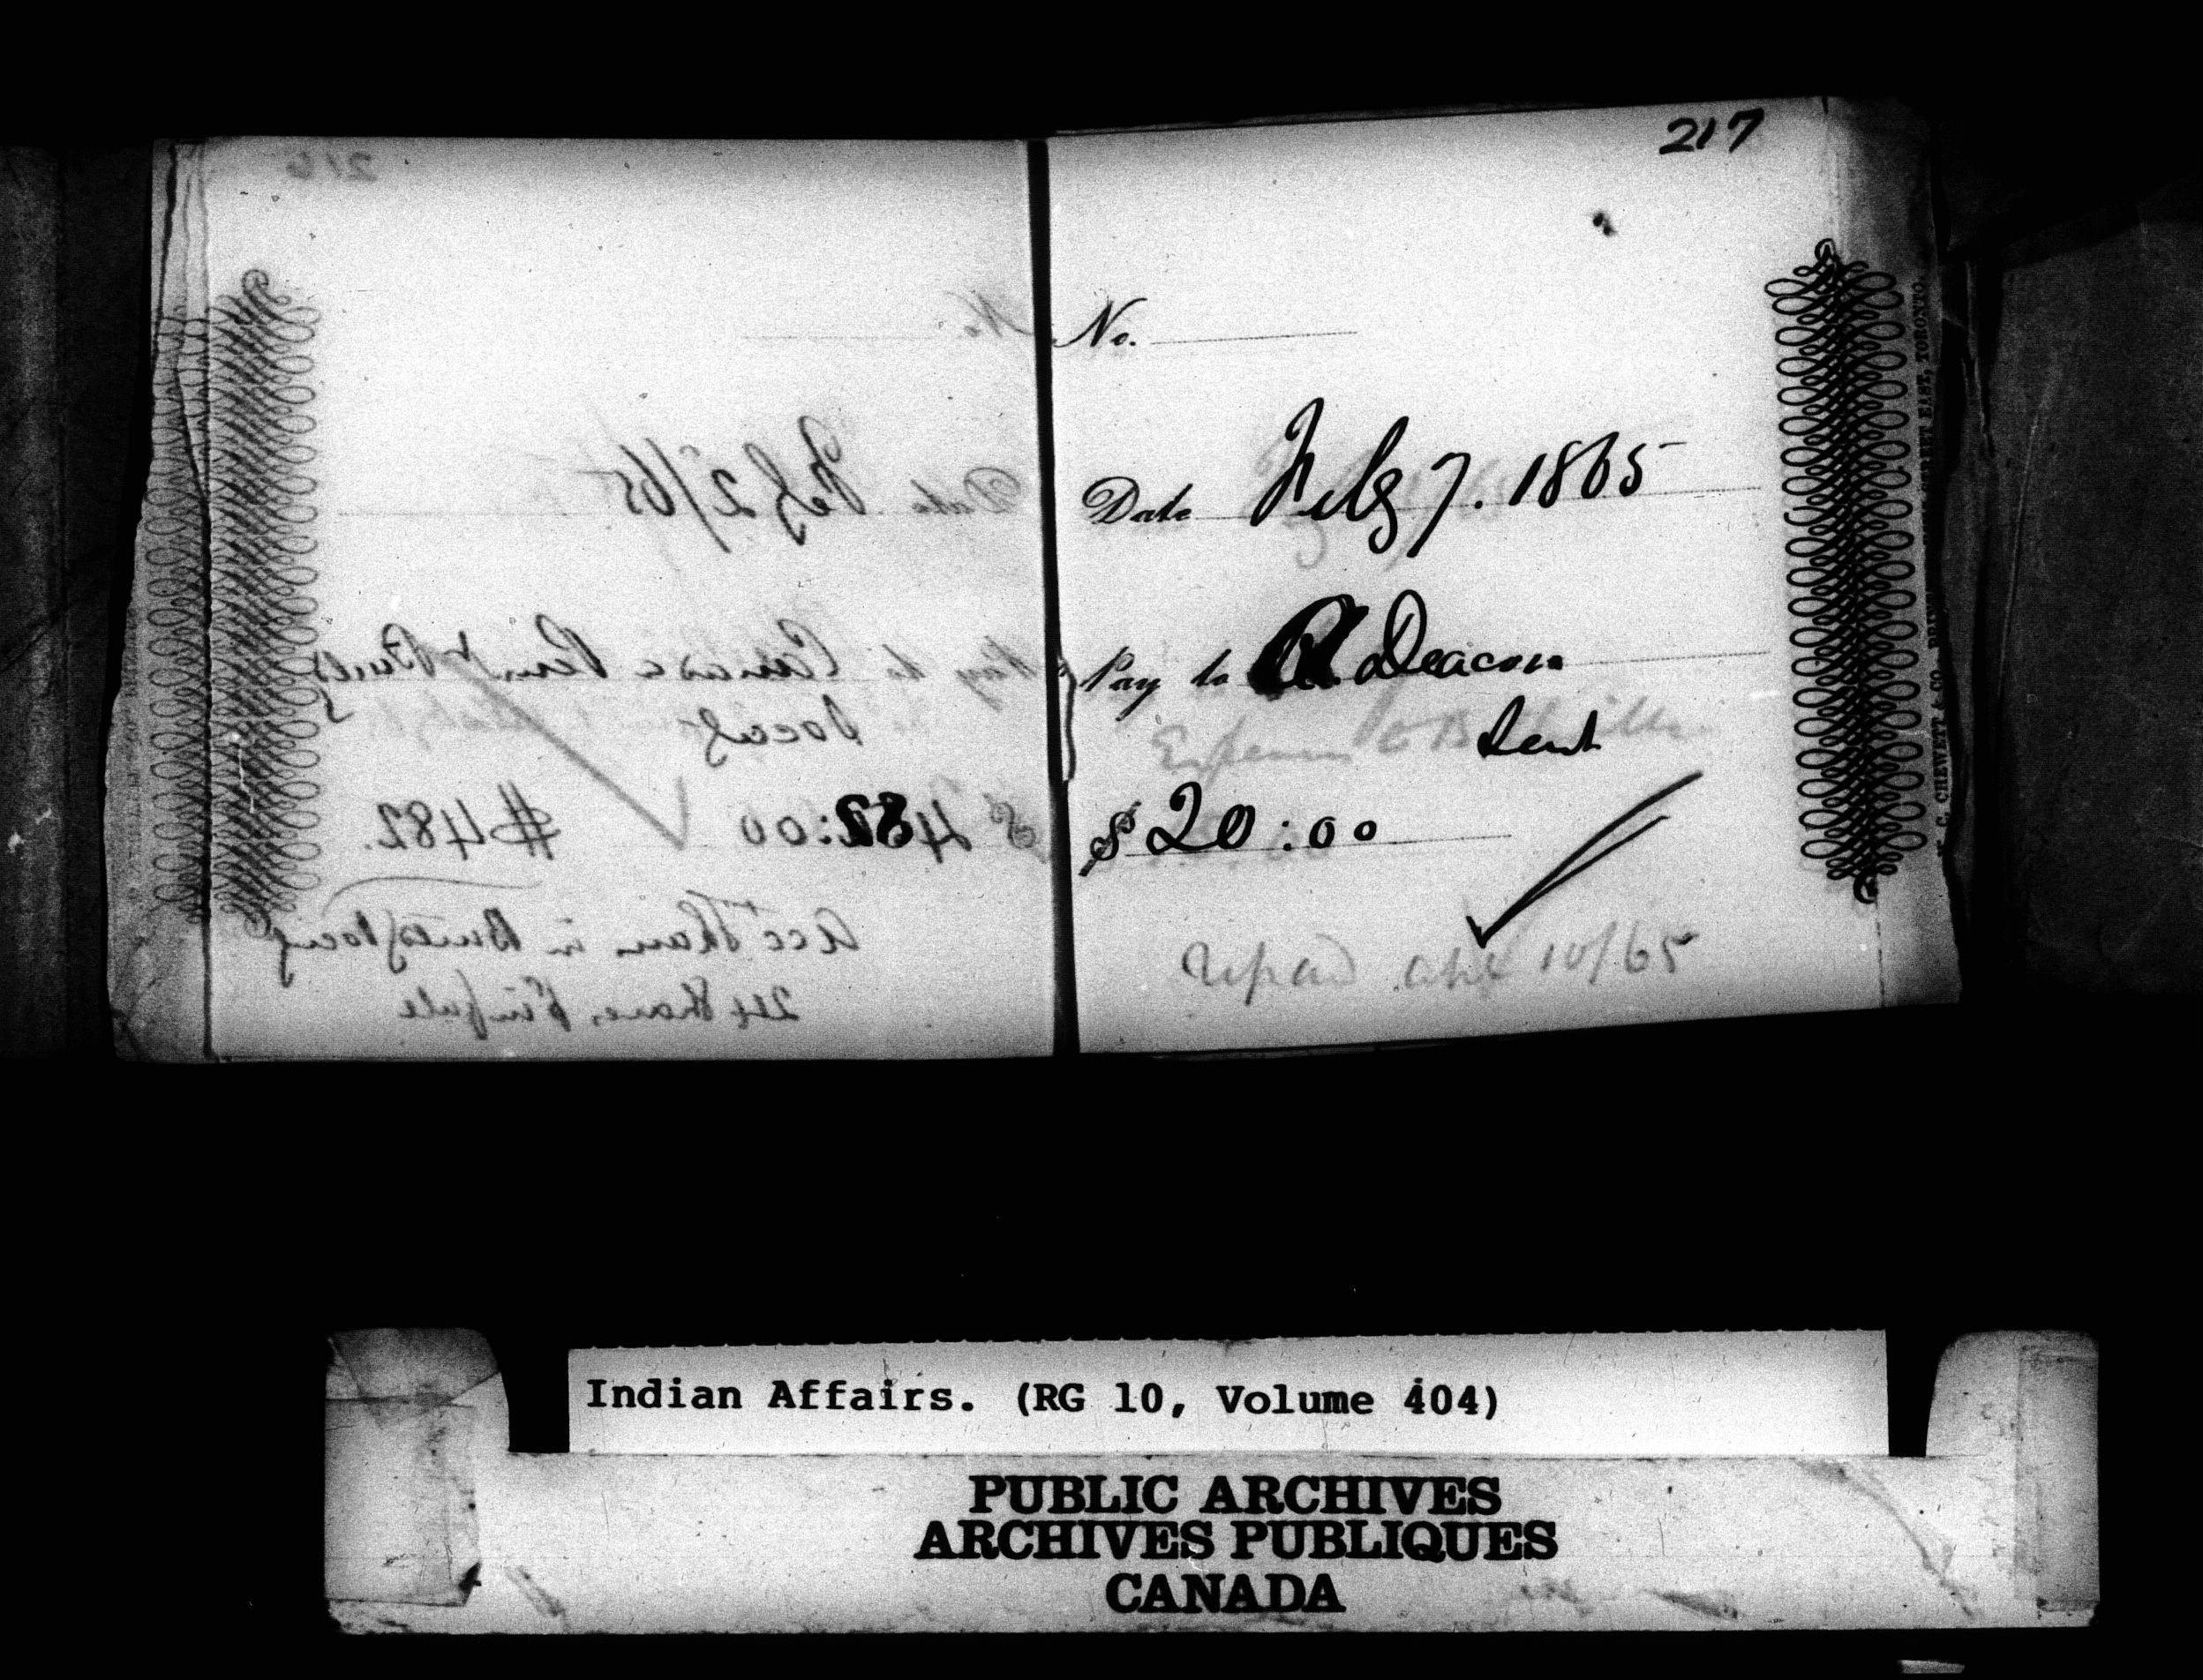 216
No.
Date Feb 2/65
Pay to Canada Perm't Build
Society
$ 482:00 $482.
acc Shares in Build Society
24 Shares
217
No.
Date Feby 7. 1865
Pay to A. Deacon
Lent
$ 20:00
repaid 10/65
W. C. CHEWETT & CO. STREET EAST, TORONTO.
Indian Affairs. (RG 10, Volume 404)
PUBLIC ARCHIVES
ARCHIVES PUBLIQUES
CANADA